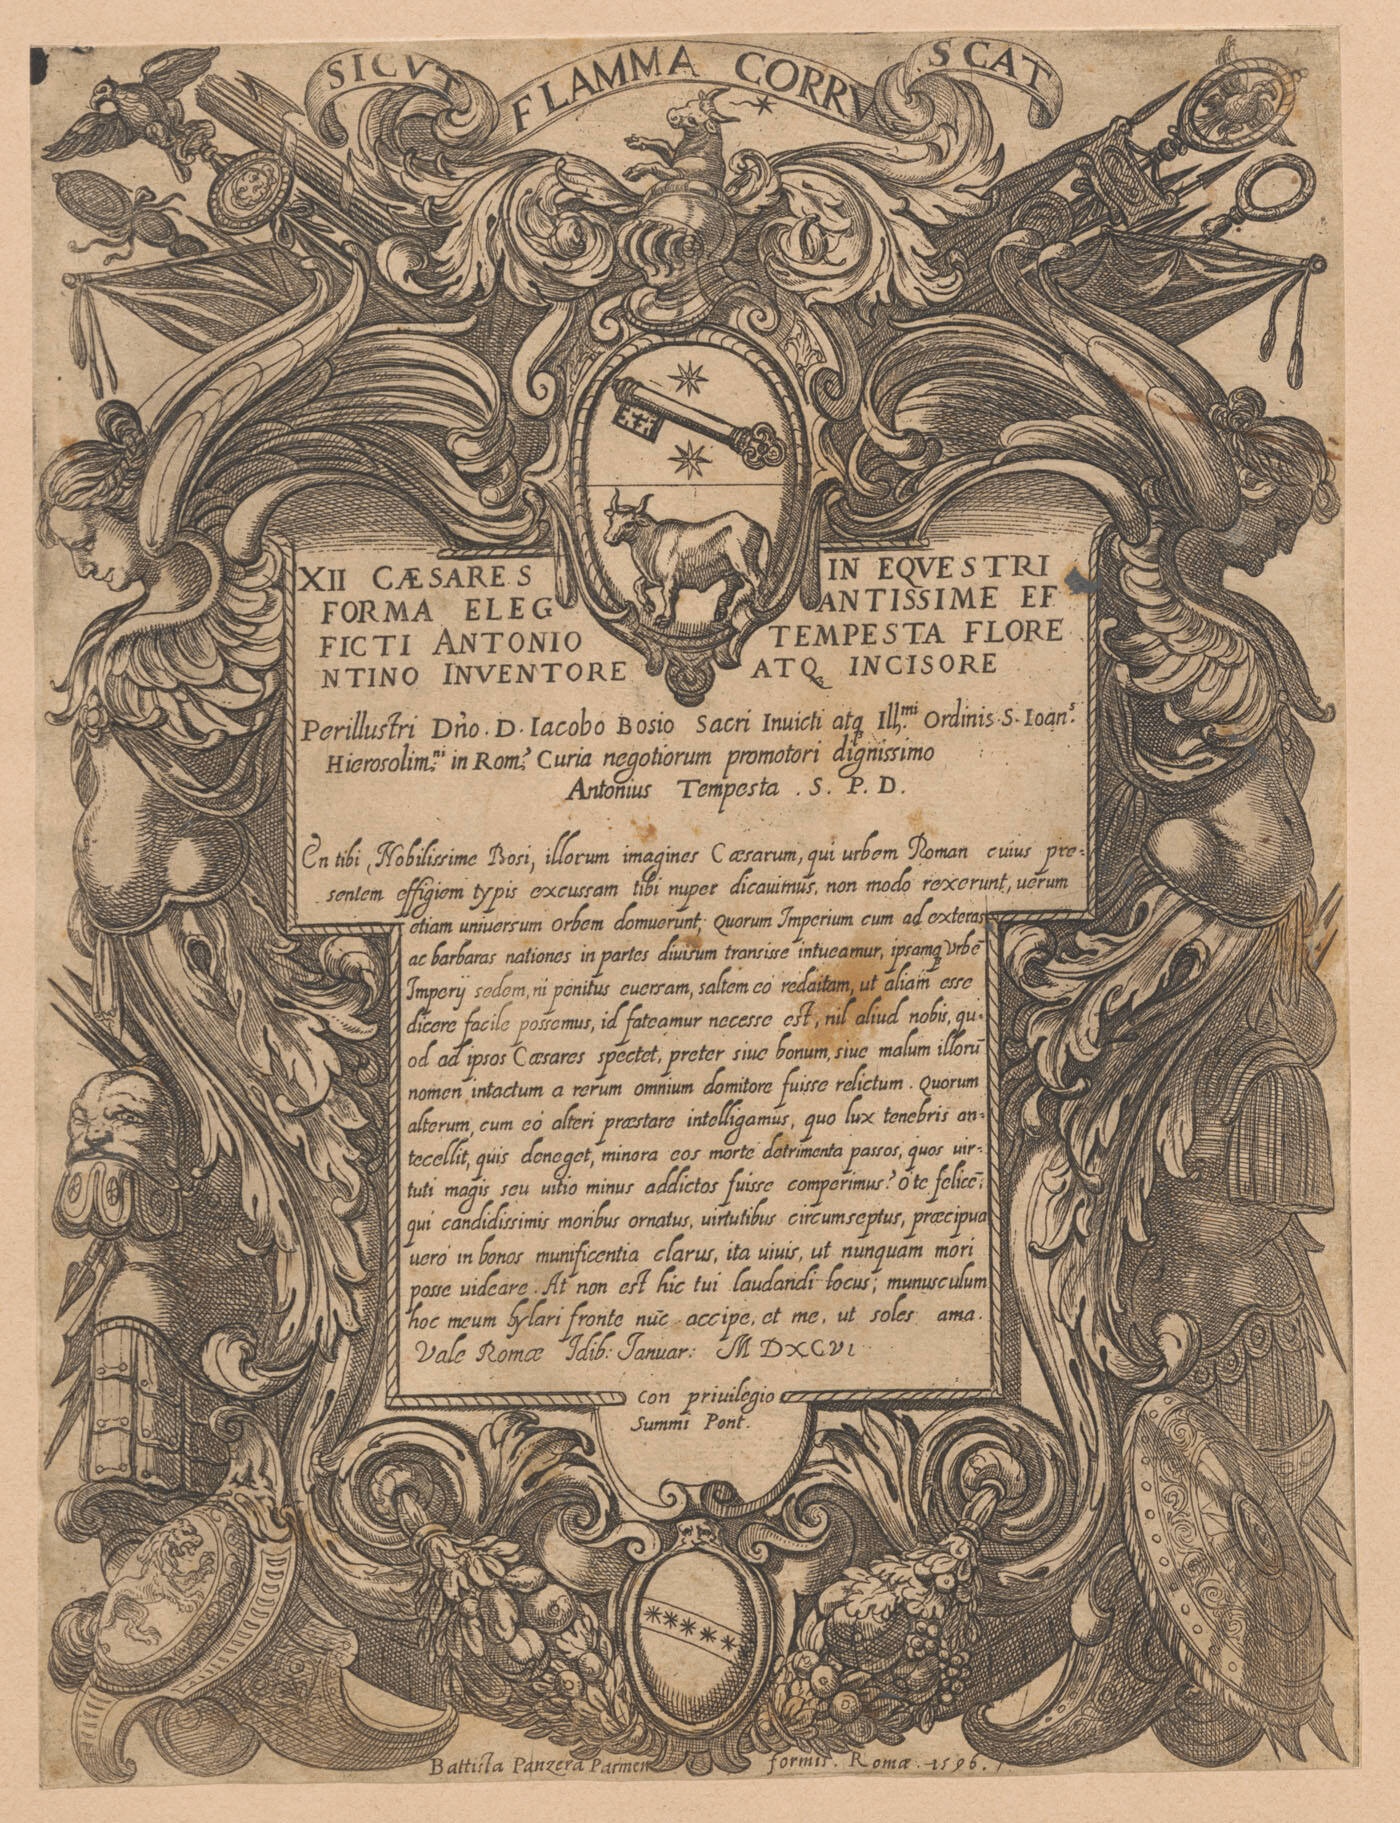 SICVT FLAMMA CORRVSCAT
XII CÆSARES IN EQVESTRI
FORMA ELEGANTISSIME EF
FICTI ANTONIO TEMPESTA FLORE
NTINO INVENTORE ATQ; INCISORE
Perillustri Dño. D. Iacobo Bosio Sacri Inuicti atq; Ill.mi Ordinis S. Ioan.s
Hierosolim.ni in Rom.a Curia negotiorum promotori dignissimo
Antonius Tempesta . S. P. D.
En tibi, Nobilissime Bosi, illorum imagines Cæsarum, qui urbem Roman cuius pre-
sentem effigiem typis excussam tibi nuper dicauimus, non modo rexerunt, uerum
etiam uniuersum orbem domuerunt; Quorum Imperium cum ad exteras
ac barbaras nationes in partes diuisum transisse intueamur, ipsamq; Vrbē
Imperij sedem, ni penitus euersam, saltem eo redaitam, ut aliam esse
dicere facile possemus, id fateamur necesse est, nil aliud nobis, qu-
od ad ipsos Cæsares spectet, preter siue bonum, siue malum illorū
nomen intactum a rerum omnium domitore fuisse relictum. Quorum
alterum, cum eò alteri præstare intelligamus, quo lux tenebris an-
tecellit, quis deneget, minora eos morte detrimenta passos, quos uir-
tuti magis seu uitio minus addictos fuisse comperimus? ò te felicē;
qui candidissimis moribus ornatus, uirtutibus circumseptus, præcipua
uero in bonos munificentia clarus, ita uiuis, ut nunquam mori
posse uideare. At non est hic tui laudandi locus; munusculum
hoc meum hylari fronte nūc accipe, et me, ut soles ama.
Vale Romæ Idib: Ianuar: M DXCVI
Con priuilegio
Summi Pont.
Battista Panzera Parmen formis. Romæ. 1596.